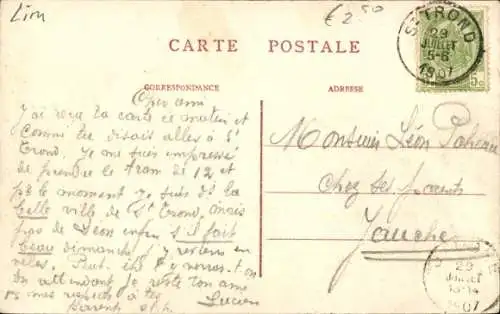 Lion
€ 2.50
CARTE POSTALE
CORRESPONDANCE
ADRESSE
ST TROND
29
JUILLET
5-6
1907
Cher ami
J'ai reçu ta carte ce matin et
comme tu disais alles à St
Trond. Je me suis empressé
de prendre le tram de 12 et
pr le moment je suis ds la
belle ville de St Trond, mais
pas de Léon enfin s'il fait
beau dimanche j'y reviens en
vélo. Peut être y verrons
En attendant je reste ton ami
mes respects à tes
parents
Lucien
Monsieur Léon
chez ses parents
Jauche
29
JUILLET
1907